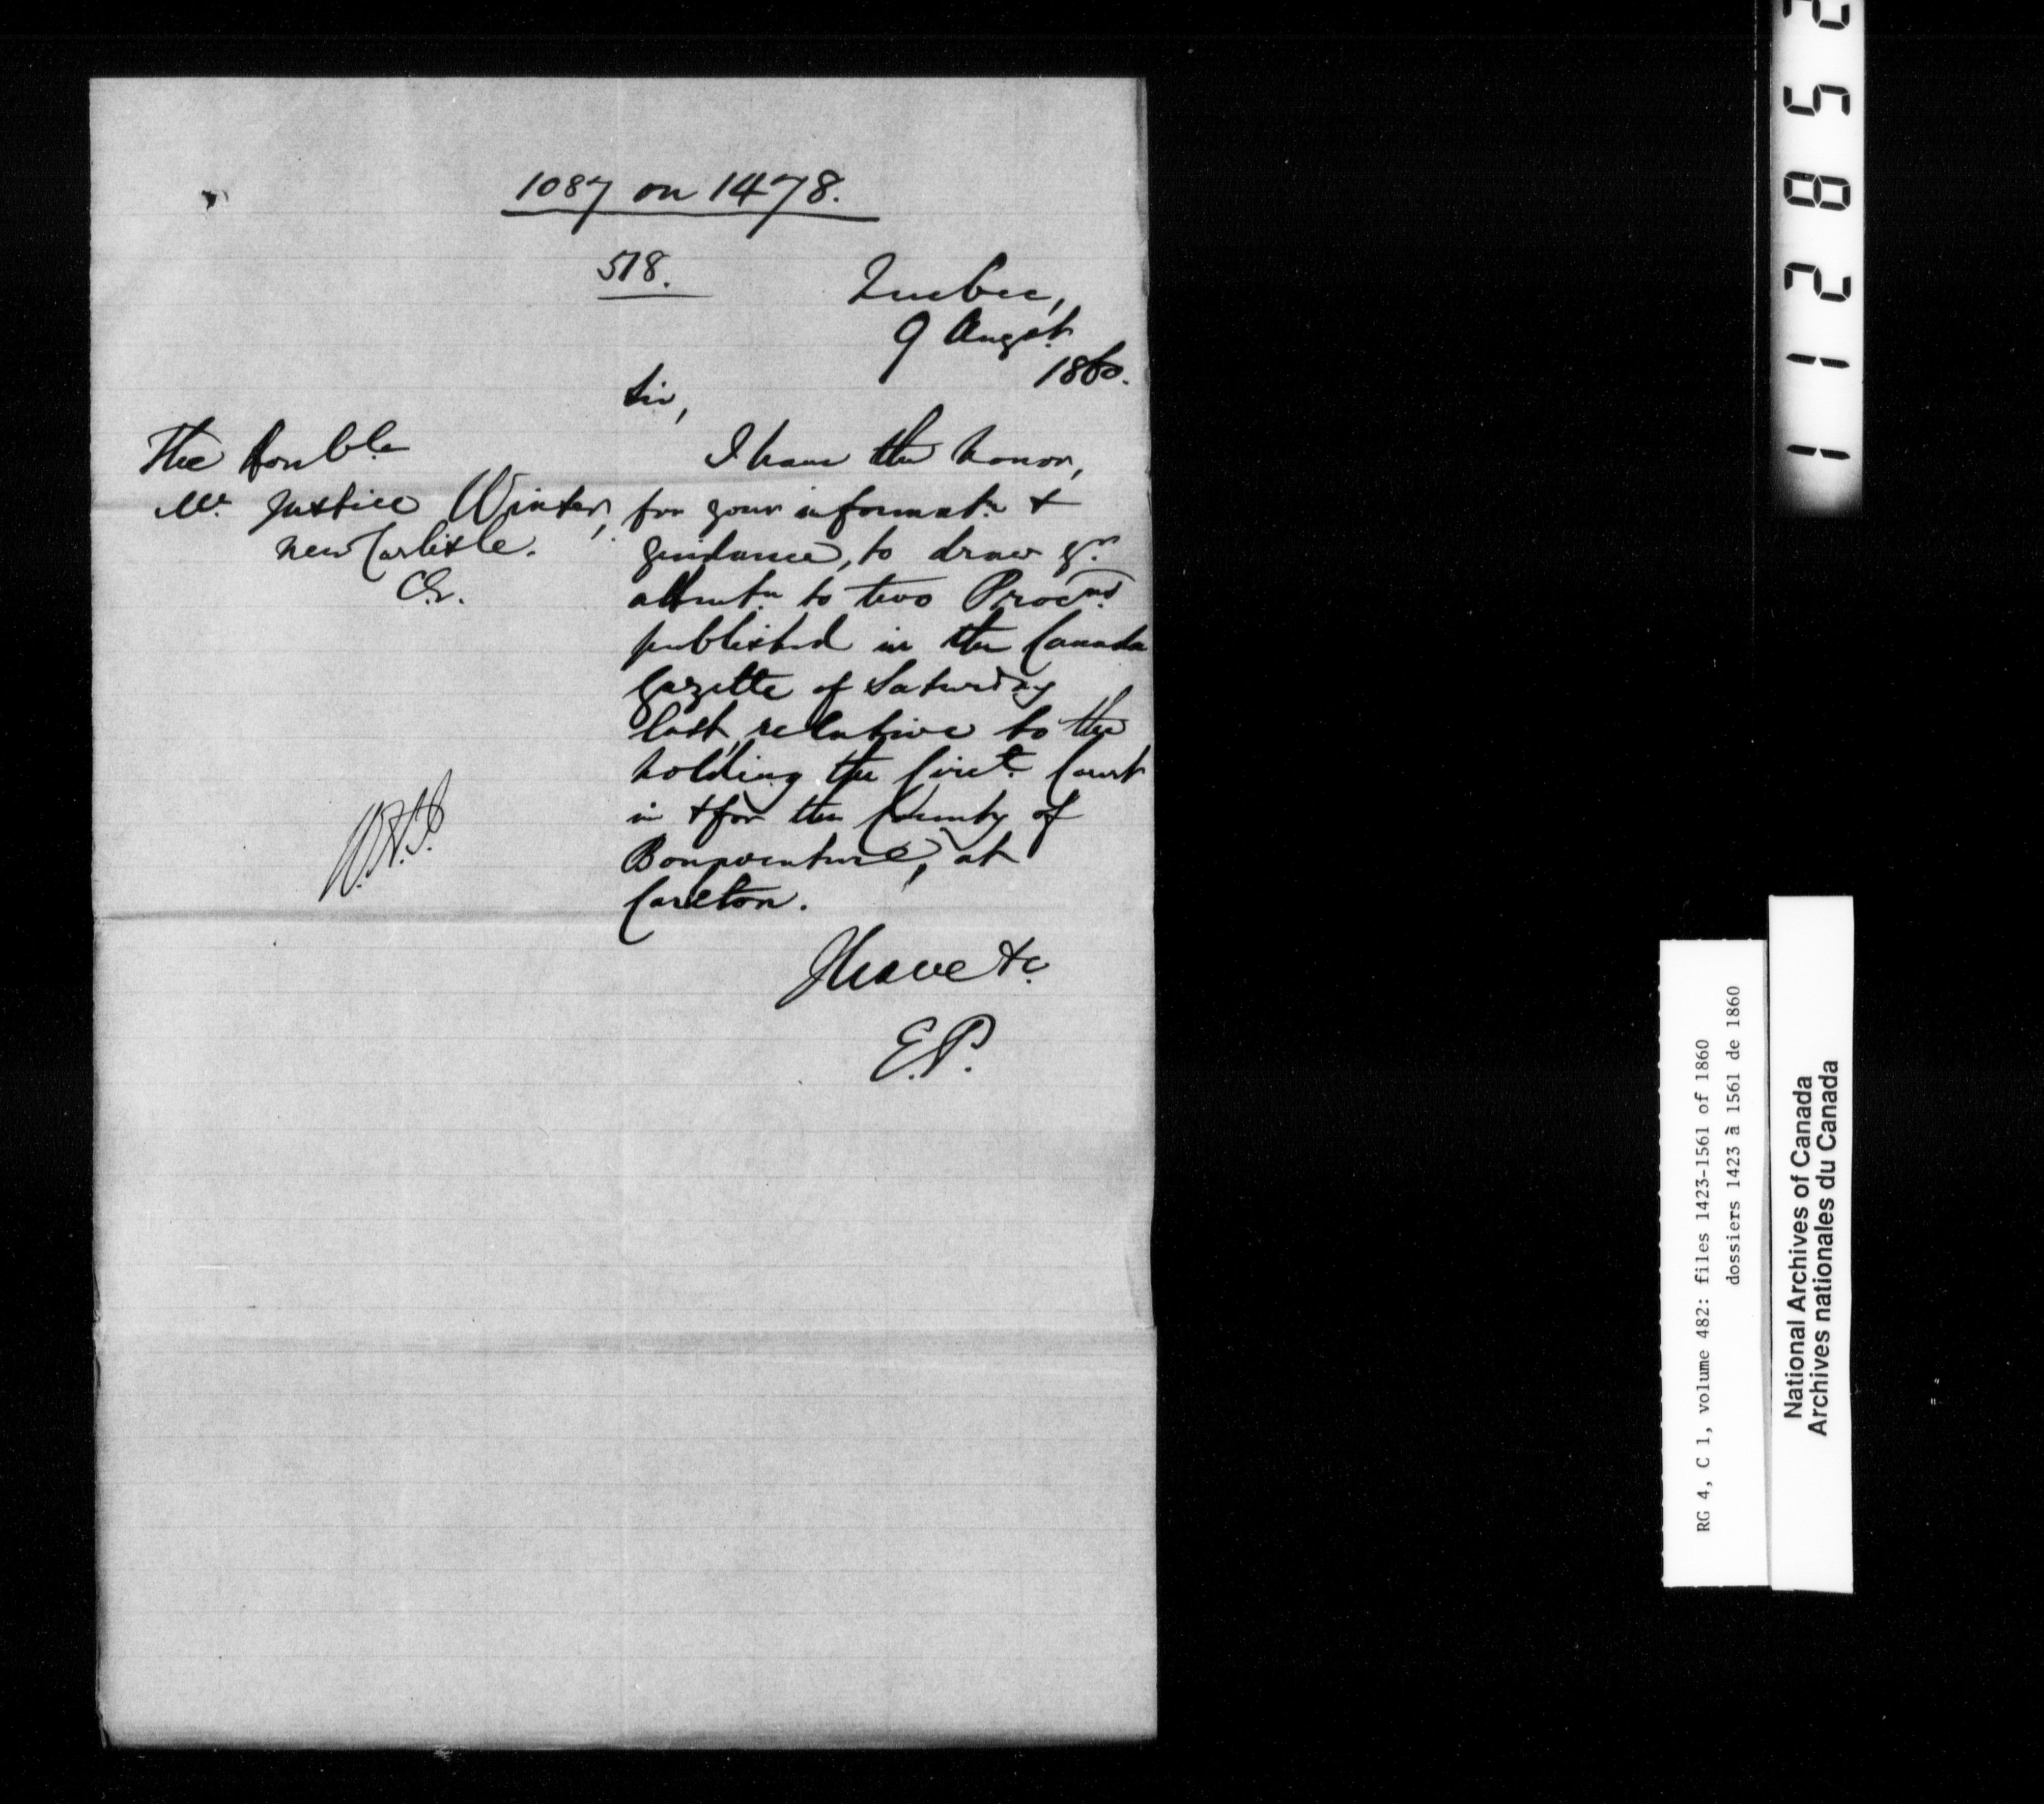 1087 on 1478.
518.
Quebec,
9 Augst.
1860.
Sir,
The Honble
Mr. Justice Winter,
New Carlisle.
I have the honor,
for your informatn. &
guidance, to draw yr.
attentn. to two Procns.
published in the Canada
Gazette of Saturday
last, relative to the
holding the Circt. Court
in & for the County of
Bonaventure, at
Carleton.
I have &c.
E.P.
112852
RG 4, C 1, volume 482: files 1423-1561 of 1860
dossiers 1423 à 1561 de 1860
National Archives of Canada
Archives nationales du Canada